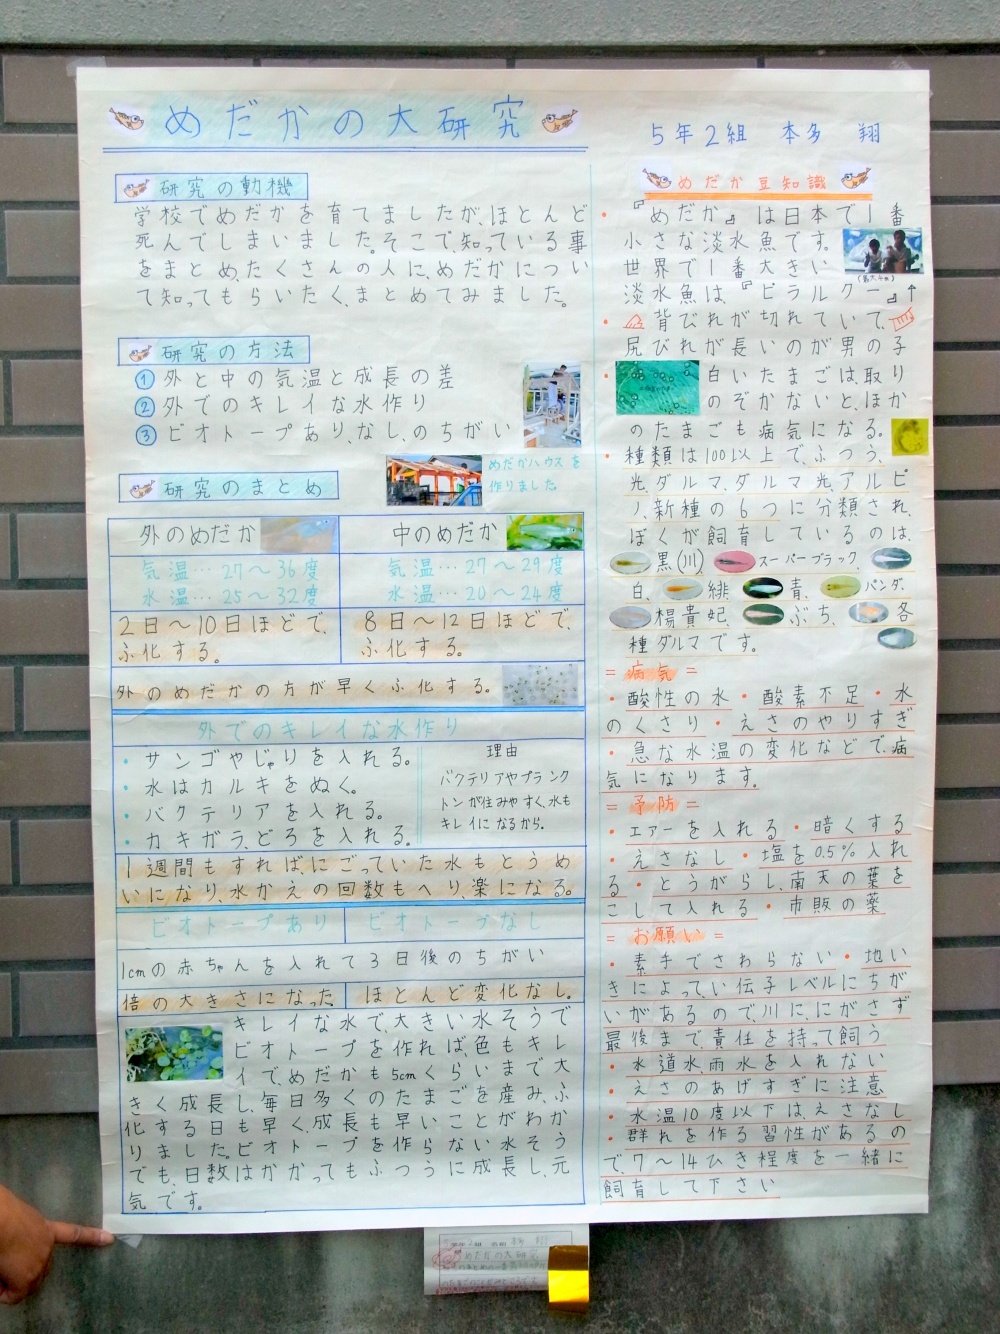 めだかの大研究
5年2組 本多 翔
研究の動機
学校でめだかを育てましたが、ほとんど
死んでしまいました。そこで、知っている事
をまとめ、たくさんの人に、めだかについ
て知ってもらいたく、まとめてみました。
研究の方法
①外と中の気温と成長の差
②外でのキレイな水作り
③ビオトープあり、なし、のちがい
めだかハウスを
作りました
研究のまとめ
外のめだか
中のめだか
気温…27〜36度
水温…25〜32度
気温…27〜29度
水温…20〜24度
2日〜10日ほどで、
ふ化する。
8日〜12日ほどで、
ふ化する。
外のめだかの方が早くふ化する。
外でのキレイな水作り
・サンゴやじゃりを入れる。
・水はカルキをぬく。
・バクテリアを入れる。
・カキガラ、どろを入れる。
理由
バクテリアやプランク
トンが住みやすく、水も
キレイになるから。
1週間もすれば、にごっていた水もとうめ
いになり、水かえの回数もへり、楽になる。
ビオトープあり
ビオトープなし
1cmの赤ちゃんを入れて3日後のちがい
倍の大きさになった
ほとんど変化なし。
キレイな水で、大きい水そうで
ビオトープを作れば、色もキレ
イで、めだかも5cmくらいまで大
きく成長し、毎日多くのたまごを産み、ふ
化する日も早く、成長も早いことがわか
りました。ビオトープを作らない水そう
でも、日数はかかってもふつうに成長し、元
気です。
めだか豆知識
・『めだか』は日本で1番
小さな淡水魚です。
世界で1番大きい
淡水魚は、『ピラルクー』↑
・背びれが切れていて、
尻びれが長いのが男の子
・白いたまごは、取り
のぞかないと、ほか
のたまごも病気になる。
・種類は100以上で、ふつう、
光、ダルマ、ダルマ光、アルビ
ノ、新種の6つに分類され、
ぼくが飼育しているのは、
黒(川) スーパーブラック、
白、緋 青、パンダ、
楊貴妃、ぶち、各
種ダルマです。
=病気=
・酸性の水・酸素不足・水
のくさり・えさのやりすぎ
・急な水温の変化などで、病
気になります。
=予防=
・エアーを入れる・暗くする
・えさなし・塩を0.5%入れ
る・とうがらし、南天の葉を
こして入れる・市販の薬
=お願い=
・素手でさわらない・地い
きによって、い伝子レベルにちが
いがあるので、川に、にがさず
最後まで、責任を持って飼う
・水道水、雨水を入れない
・えさのあげすぎに注意
・水温10度以下は、えさなし
・群れを作る習性があるの
で、7〜14ひき程度を一緒に
飼育して下さい
めだかの大研究